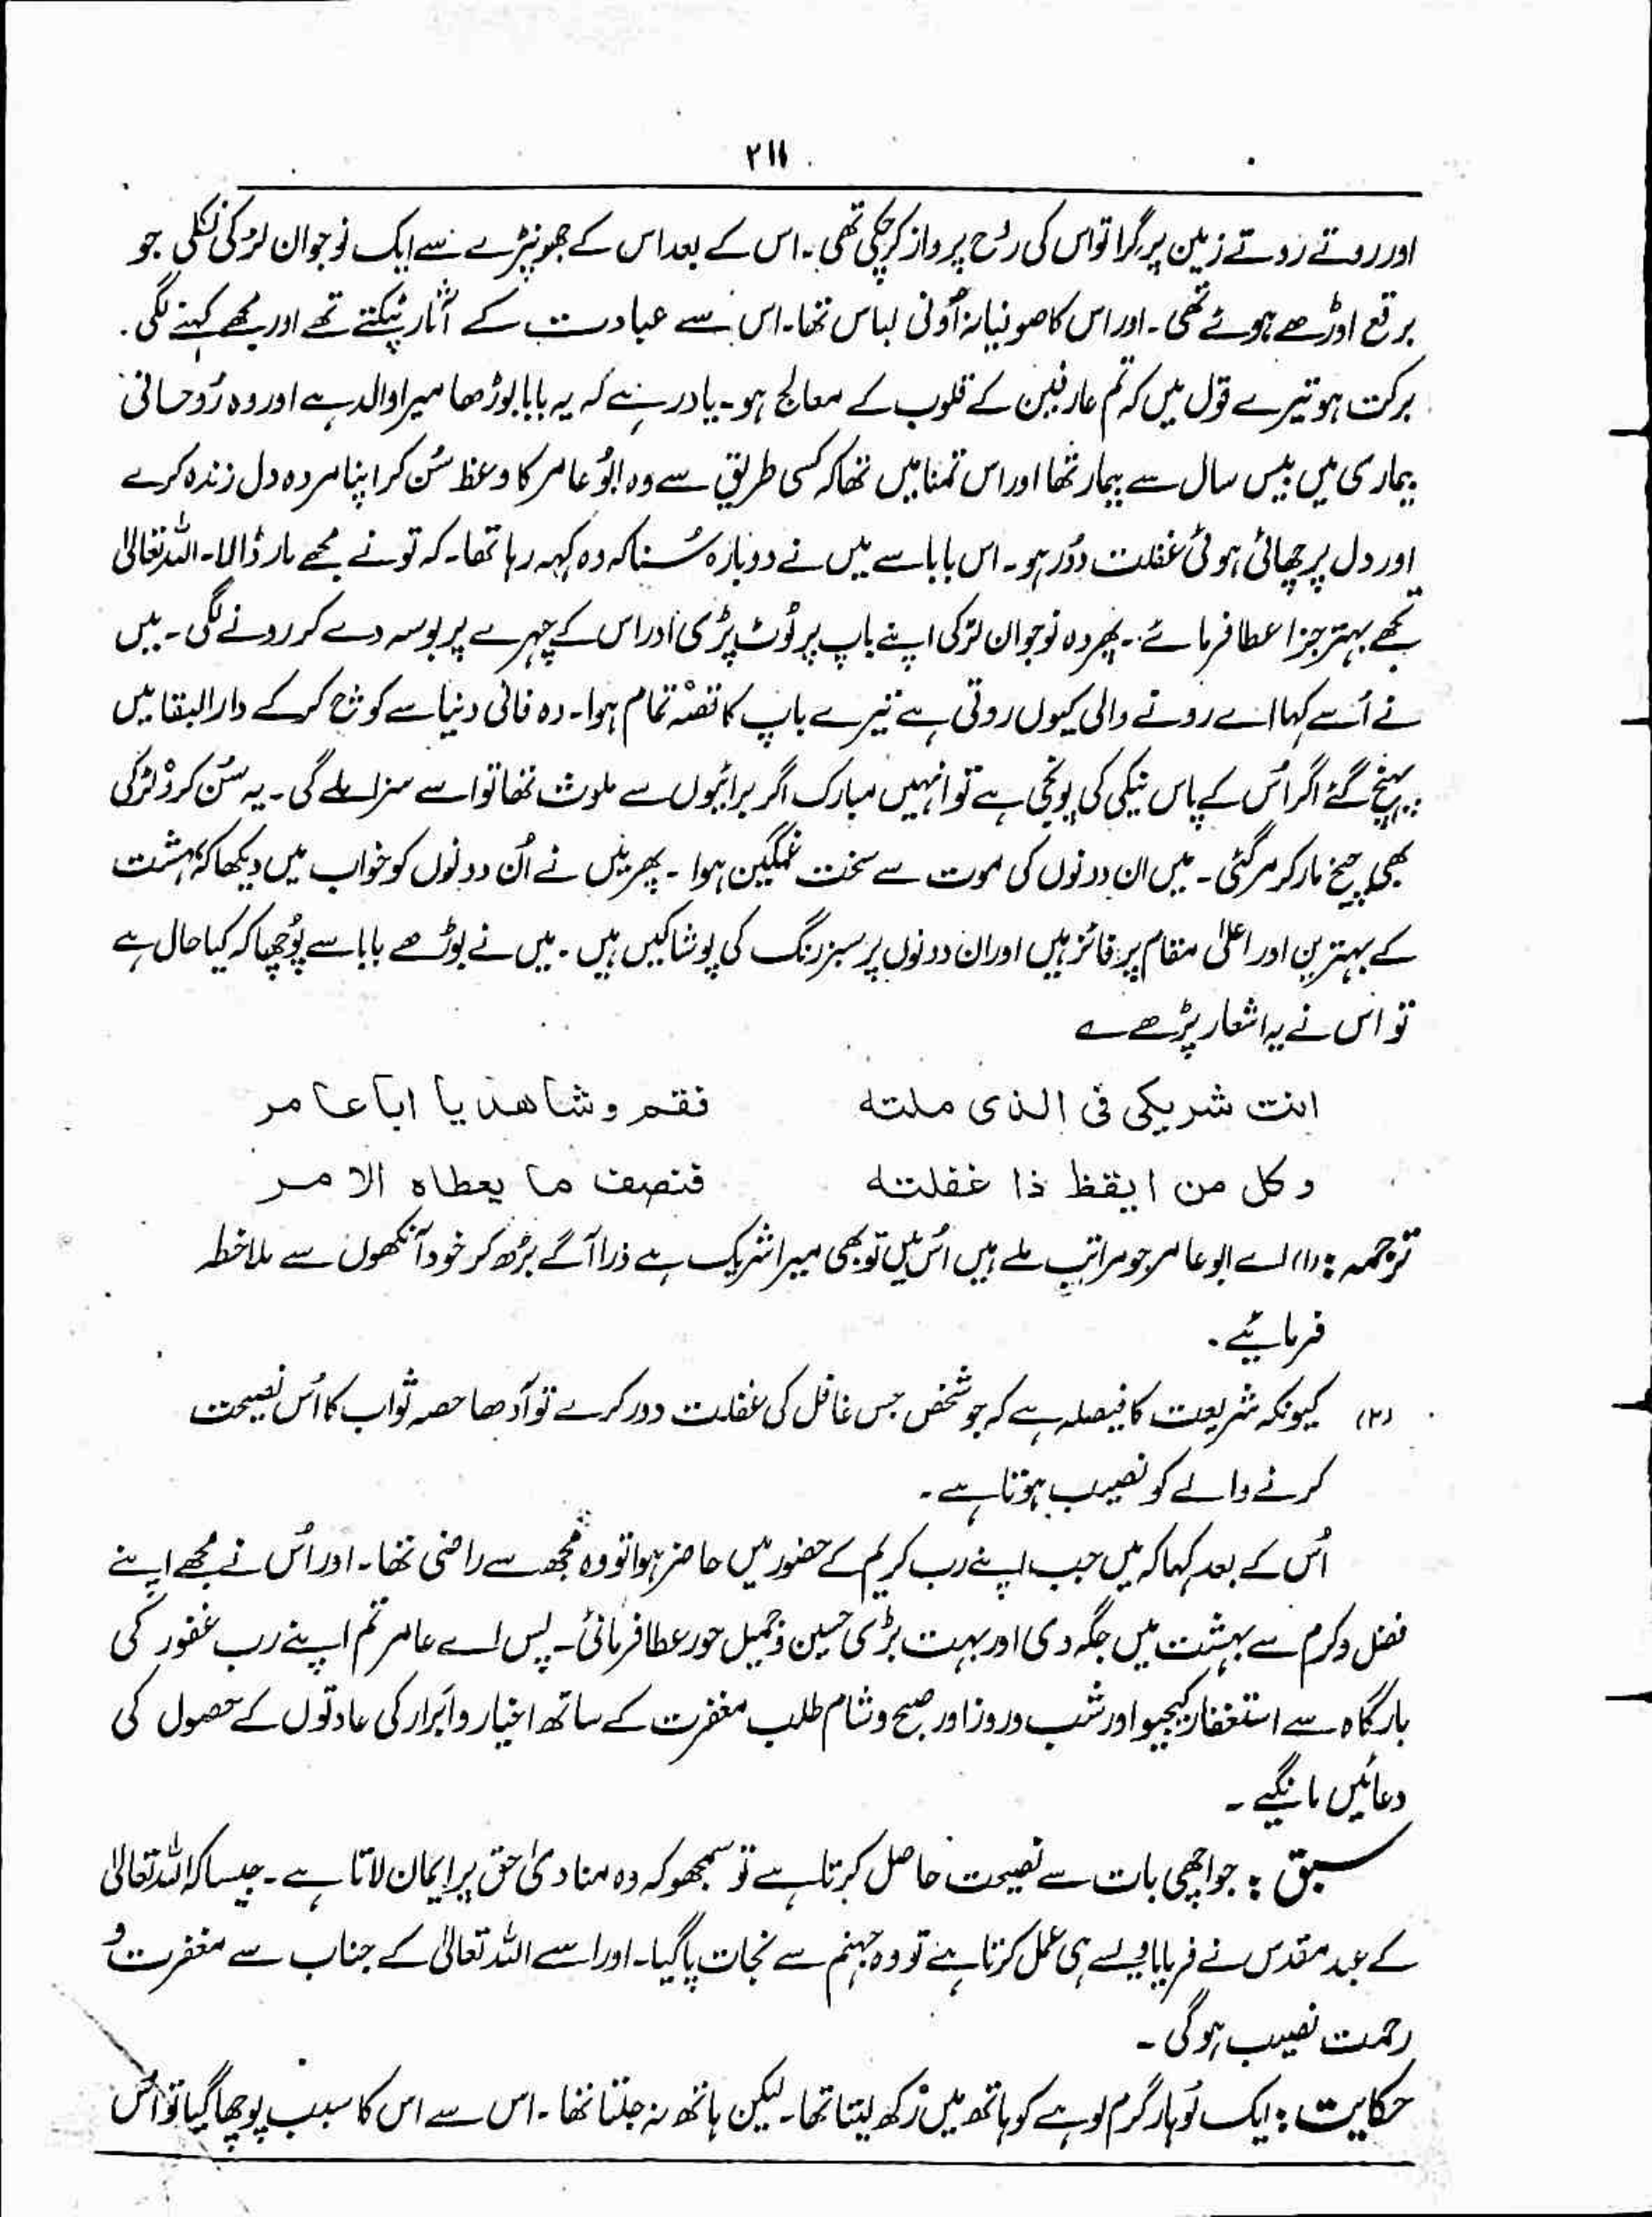 ۲۱۱
اور روتے روتے زمین پر گرا تو اس کی رُوح پرواز کر چکی تھی۔ اس کے بعد اس کے جھونپڑے سے ایک نوجوان لڑکی نکلی جو
برقع اوڑھے ہوئے تھی۔ اور اس کا صوفیانہ اُونی لباس تھا۔ اس سے عبادت کے آثار ٹپکتے تھے اور مجھے کہنے لگی۔
برکت ہو تیرے قول میں کہ تم عارفین کے قلوب کے معالج ہو۔ یاد رہے کہ یہ بابا بوڑھا میرا والد ہے اور وہ رُوحانی
بیماری میں بیس سال سے بیمار تھا اور اس تمنا میں تھا کہ کسی طریق سے وہ ابُو عامر کا وعظ سُن کر اپنا مردہ دل زندہ کرے
اور دل پر چھائی ہوئی غفلت دُور ہو۔ اس بابا سے میں نے دوبارہ سُنا کہ وہ کہہ رہا تھا۔ کہ تو نے مجھے مار ڈالا۔ اللہ تعالیٰ
تجھے بہتر جزا عطا فرمائے۔ پھر وہ نوجوان لڑکی اپنے باپ پر ٹوٹ پڑی اور اس کے چہرے پر بوسہ دے کر رونے لگی۔ میں
نے اُسے کہا اے رونے والی کیوں روتی ہے تیرے باپ کا قصّہ تمام ہوا۔ وہ فانی دنیا سے کوچ کر کے دارالبقا میں
پہنچ گئے اگر اُس کے پاس نیکی کی پونجی ہے تو انہیں مبارک اگر برائیوں سے ملوث تھا تو اسے سزا ملے گی۔ یہ سُن کر وُہ لڑکی
بھی چیخ مار کر مر گئی۔ میں ان دونوں کی موت سے سخت غمگین ہوا۔ پھر میں نے اُن دونوں کو خواب میں دیکھا کہ بہشت
کے بہترین اور اعلیٰ مقام پر فائز ہیں اور ان دونوں پر سبز رنگ کی پوشاکیں ہیں۔ میں نے بوڑھے بابا سے پُوچھا کہ کیا حال ہے
تو اس نے یہ اشعار پڑھے ؎
انت شریکی فی الذی ملتہ فقم وشاھد یا ابا عامر
وکل من ایقظ ذا غفلتہ فنصف ما یعطاہ الامر
ترجمہ: (۱) اے ابو عامر جو مراتب ملے ہیں اُس میں تو بھی میرا شریک ہے ذرا آگے بڑھ کر خود آنکھوں سے ملاحظہ
فرمائیے۔
(۲) کیونکہ شریعت کا فیصلہ ہے کہ جو شخص جس غافل کی غفلت دور کرے تو آدھا حصہ ثواب کا اُس نصیحت
کرنے والے کو نصیب ہوتا ہے۔
اُس کے بعد کہا کہ میں جب اپنے رب کریم کے حضور میں حاضر ہوا تو وہ مجھ سے راضی تھا۔ اور اُس نے مجھے اپنے
فضل و کرم سے بہشت میں جگہ دی اور بہت بڑی حسین و جمیل حور عطا فرمائی۔ پس اے عامر تم اپنے رب غفور کی
بارگاہ سے استغفار کیجیو اور شب و روز اور صبح و شام طلب مغفرت کے ساتھ اخیار و اَبرار کی عادتوں کے حصول کی
دعائیں مانگیے۔
سبق: جو اچھی بات سے نصیحت حاصل کرتا ہے تو سمجھو کہ وہ منادئ حق پر ایمان لاتا ہے۔ جیسا کہ اللہ تعالیٰ
کے عبد مقدس نے فرمایا ویسے ہی عمل کرتا ہے تو وہ جہنم سے نجات پا گیا۔ اور اسے اللہ تعالیٰ کے جناب سے مغفرت و
رحمت نصیب ہو گی۔
حکایت: ایک لُوہار گرم لوہے کو ہاتھ میں رکھ لیتا تھا۔ لیکن ہاتھ نہ جلتا تھا۔ اس سے اس کا سبب پوچھا گیا تو اُس